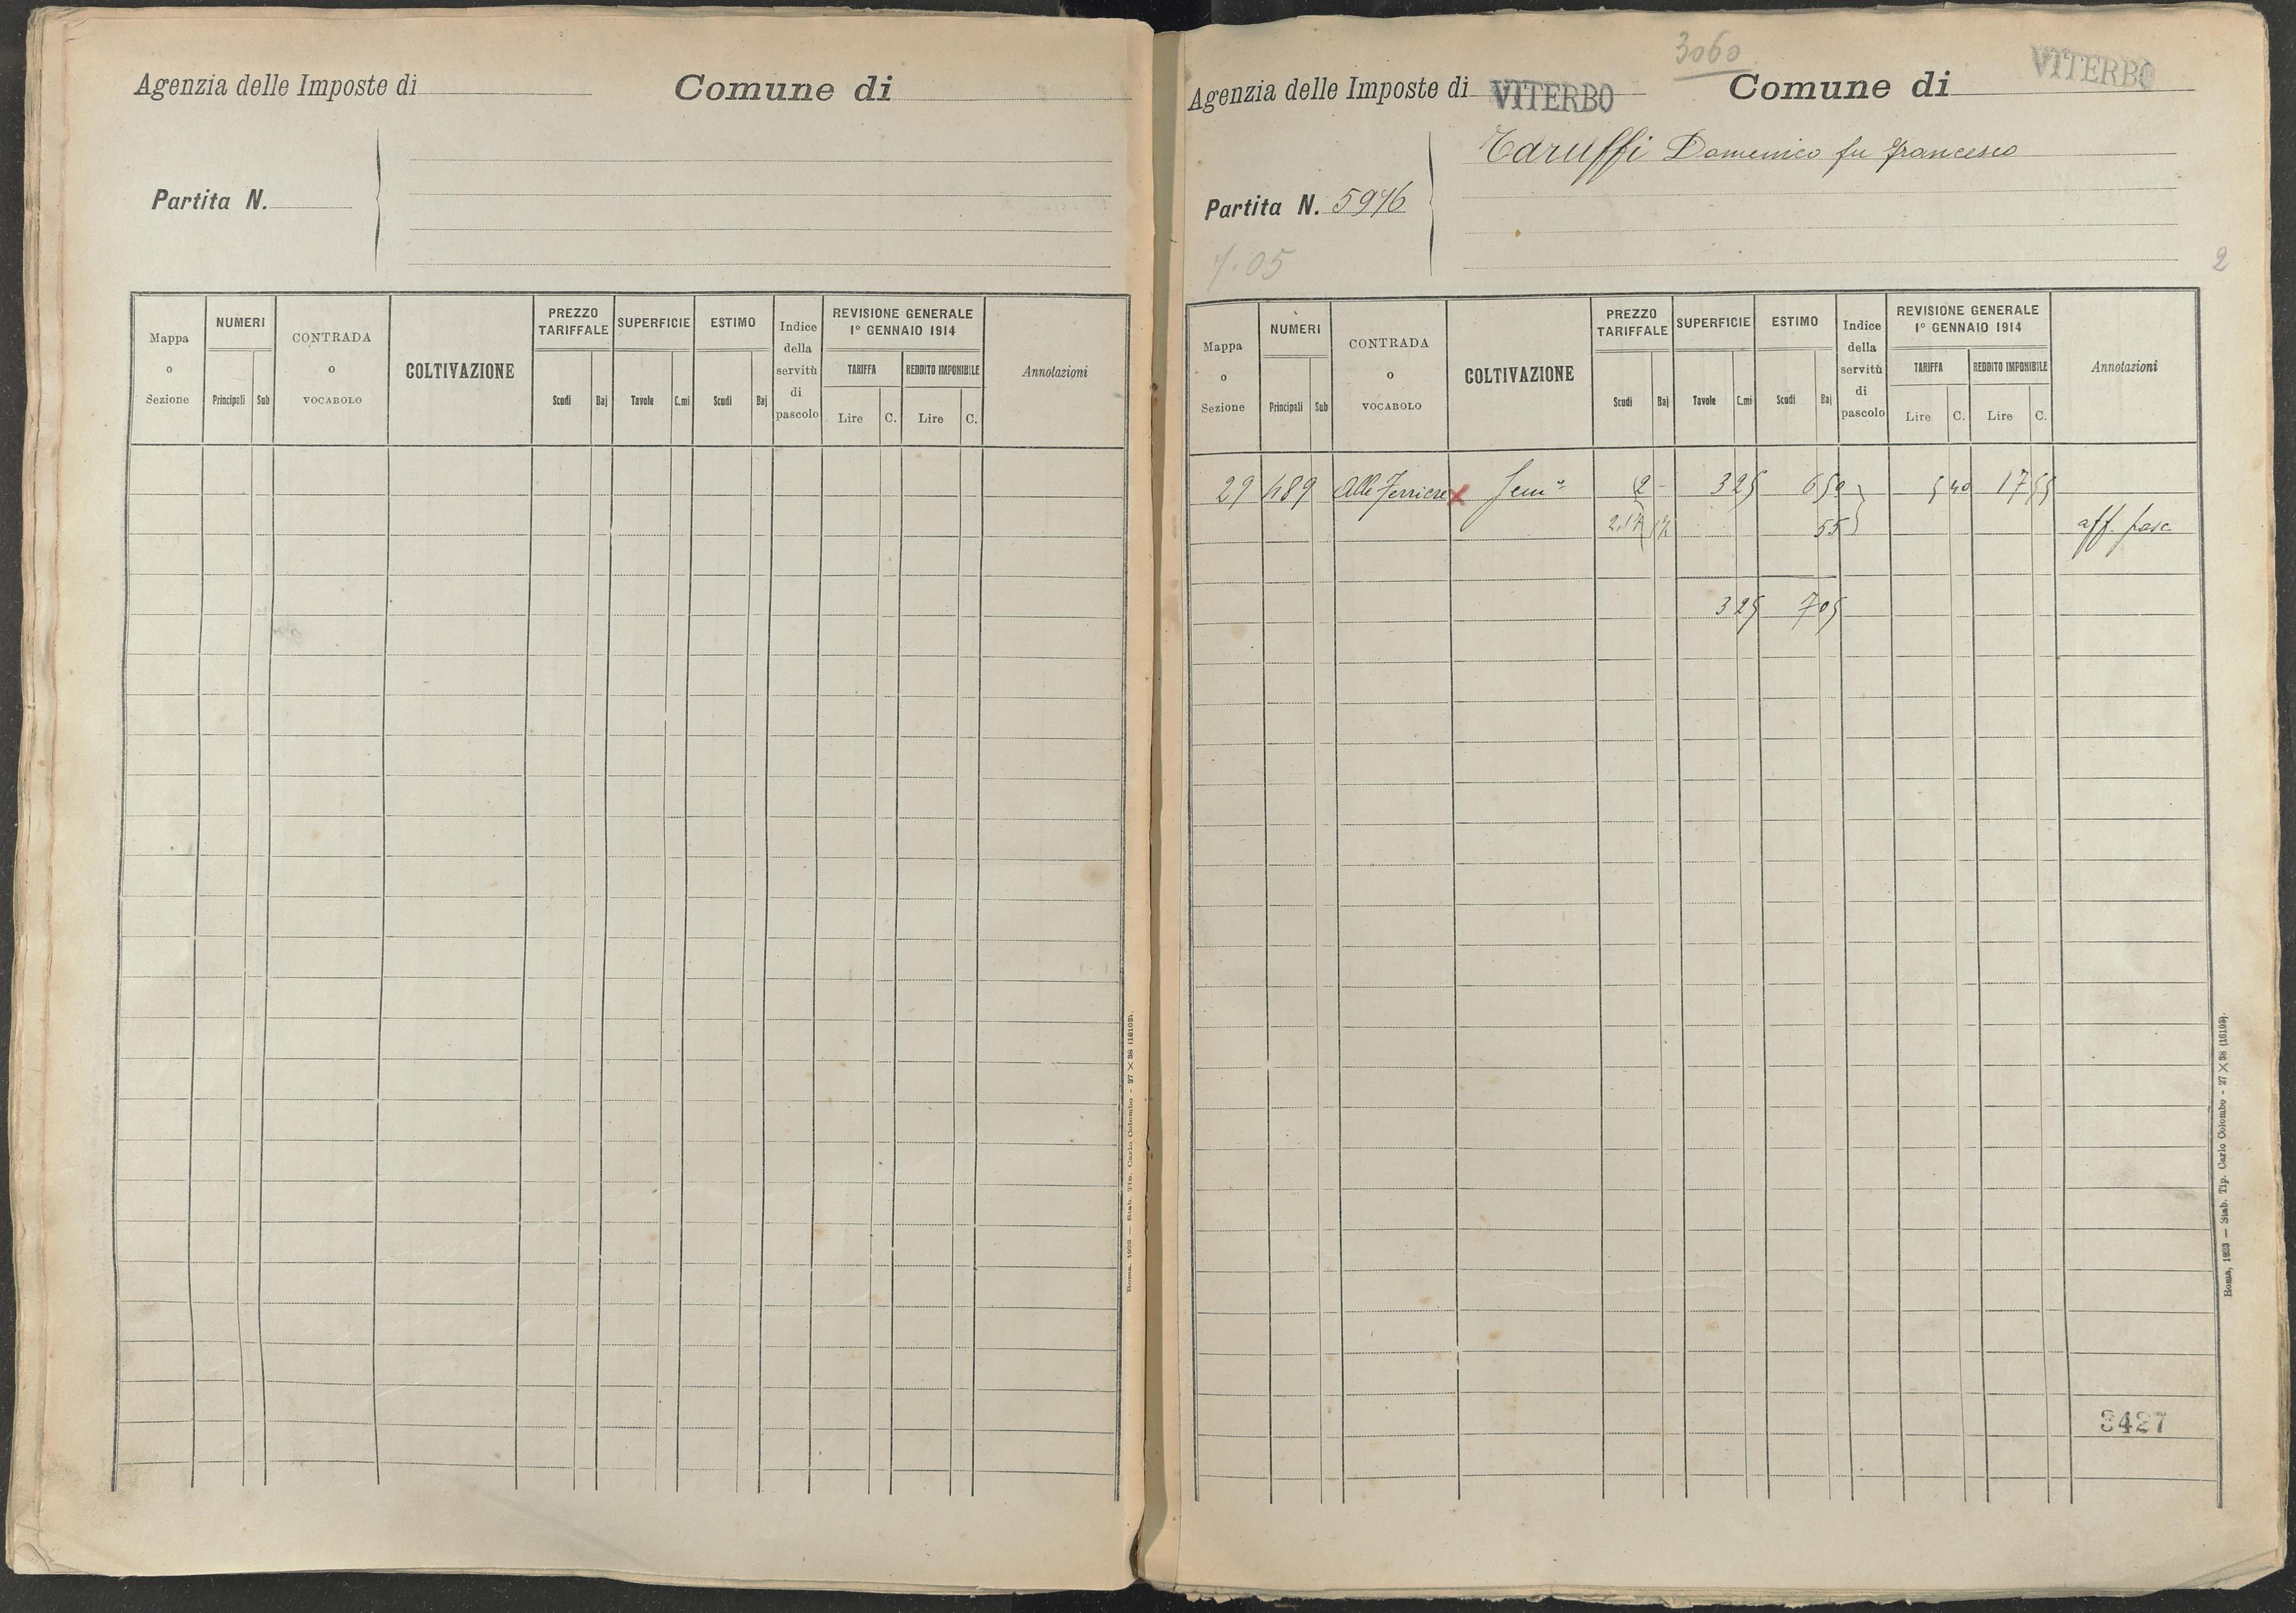 Agenzia delle Imposte di Comune di
Partita N.
Mappa o Sezione
NUMERI
Principali Sub
CONTRADA o VOCABOLO
COLTIVAZIONE
PREZZO TARIFFALE
Scudi Baj
SUPERFICIE
Tavole C.mi
ESTIMO
Scudi Baj
Indice della servitù di pascolo
REVISIONE GENERALE
1° GENNAIO 1914
TARIFFA REDDITO IMPONIBILE
Lire C. Lire C.
Annotazioni
Roma, 1923 — Stab. Tip. Carlo Colombo - 27 × 38 (16103).
3060
Agenzia delle Imposte di VITERBO Comune di VITERBO
Taruffi Domenico fu Francesco
Partita N. 5976
7.05
2
Mappa o Sezione
NUMERI
Principali Sub
CONTRADA o VOCABOLO
COLTIVAZIONE
PREZZO TARIFFALE
Scudi Baj
SUPERFICIE
Tavole C.mi
ESTIMO
Scudi Baj
Indice della servitù di pascolo
REVISIONE GENERALE
1° GENNAIO 1914
TARIFFA REDDITO IMPONIBILE
Lire C. Lire C.
Annotazioni
29 489 Alle Ferriere x Sem° 2 - 3 25 6 50 5 40 17 55
2.17 17 55 aff. pasc
3 25 7 05
3427
Roma, 1923 — Stab. Tip. Carlo Colombo - 27 × 38 (16103).